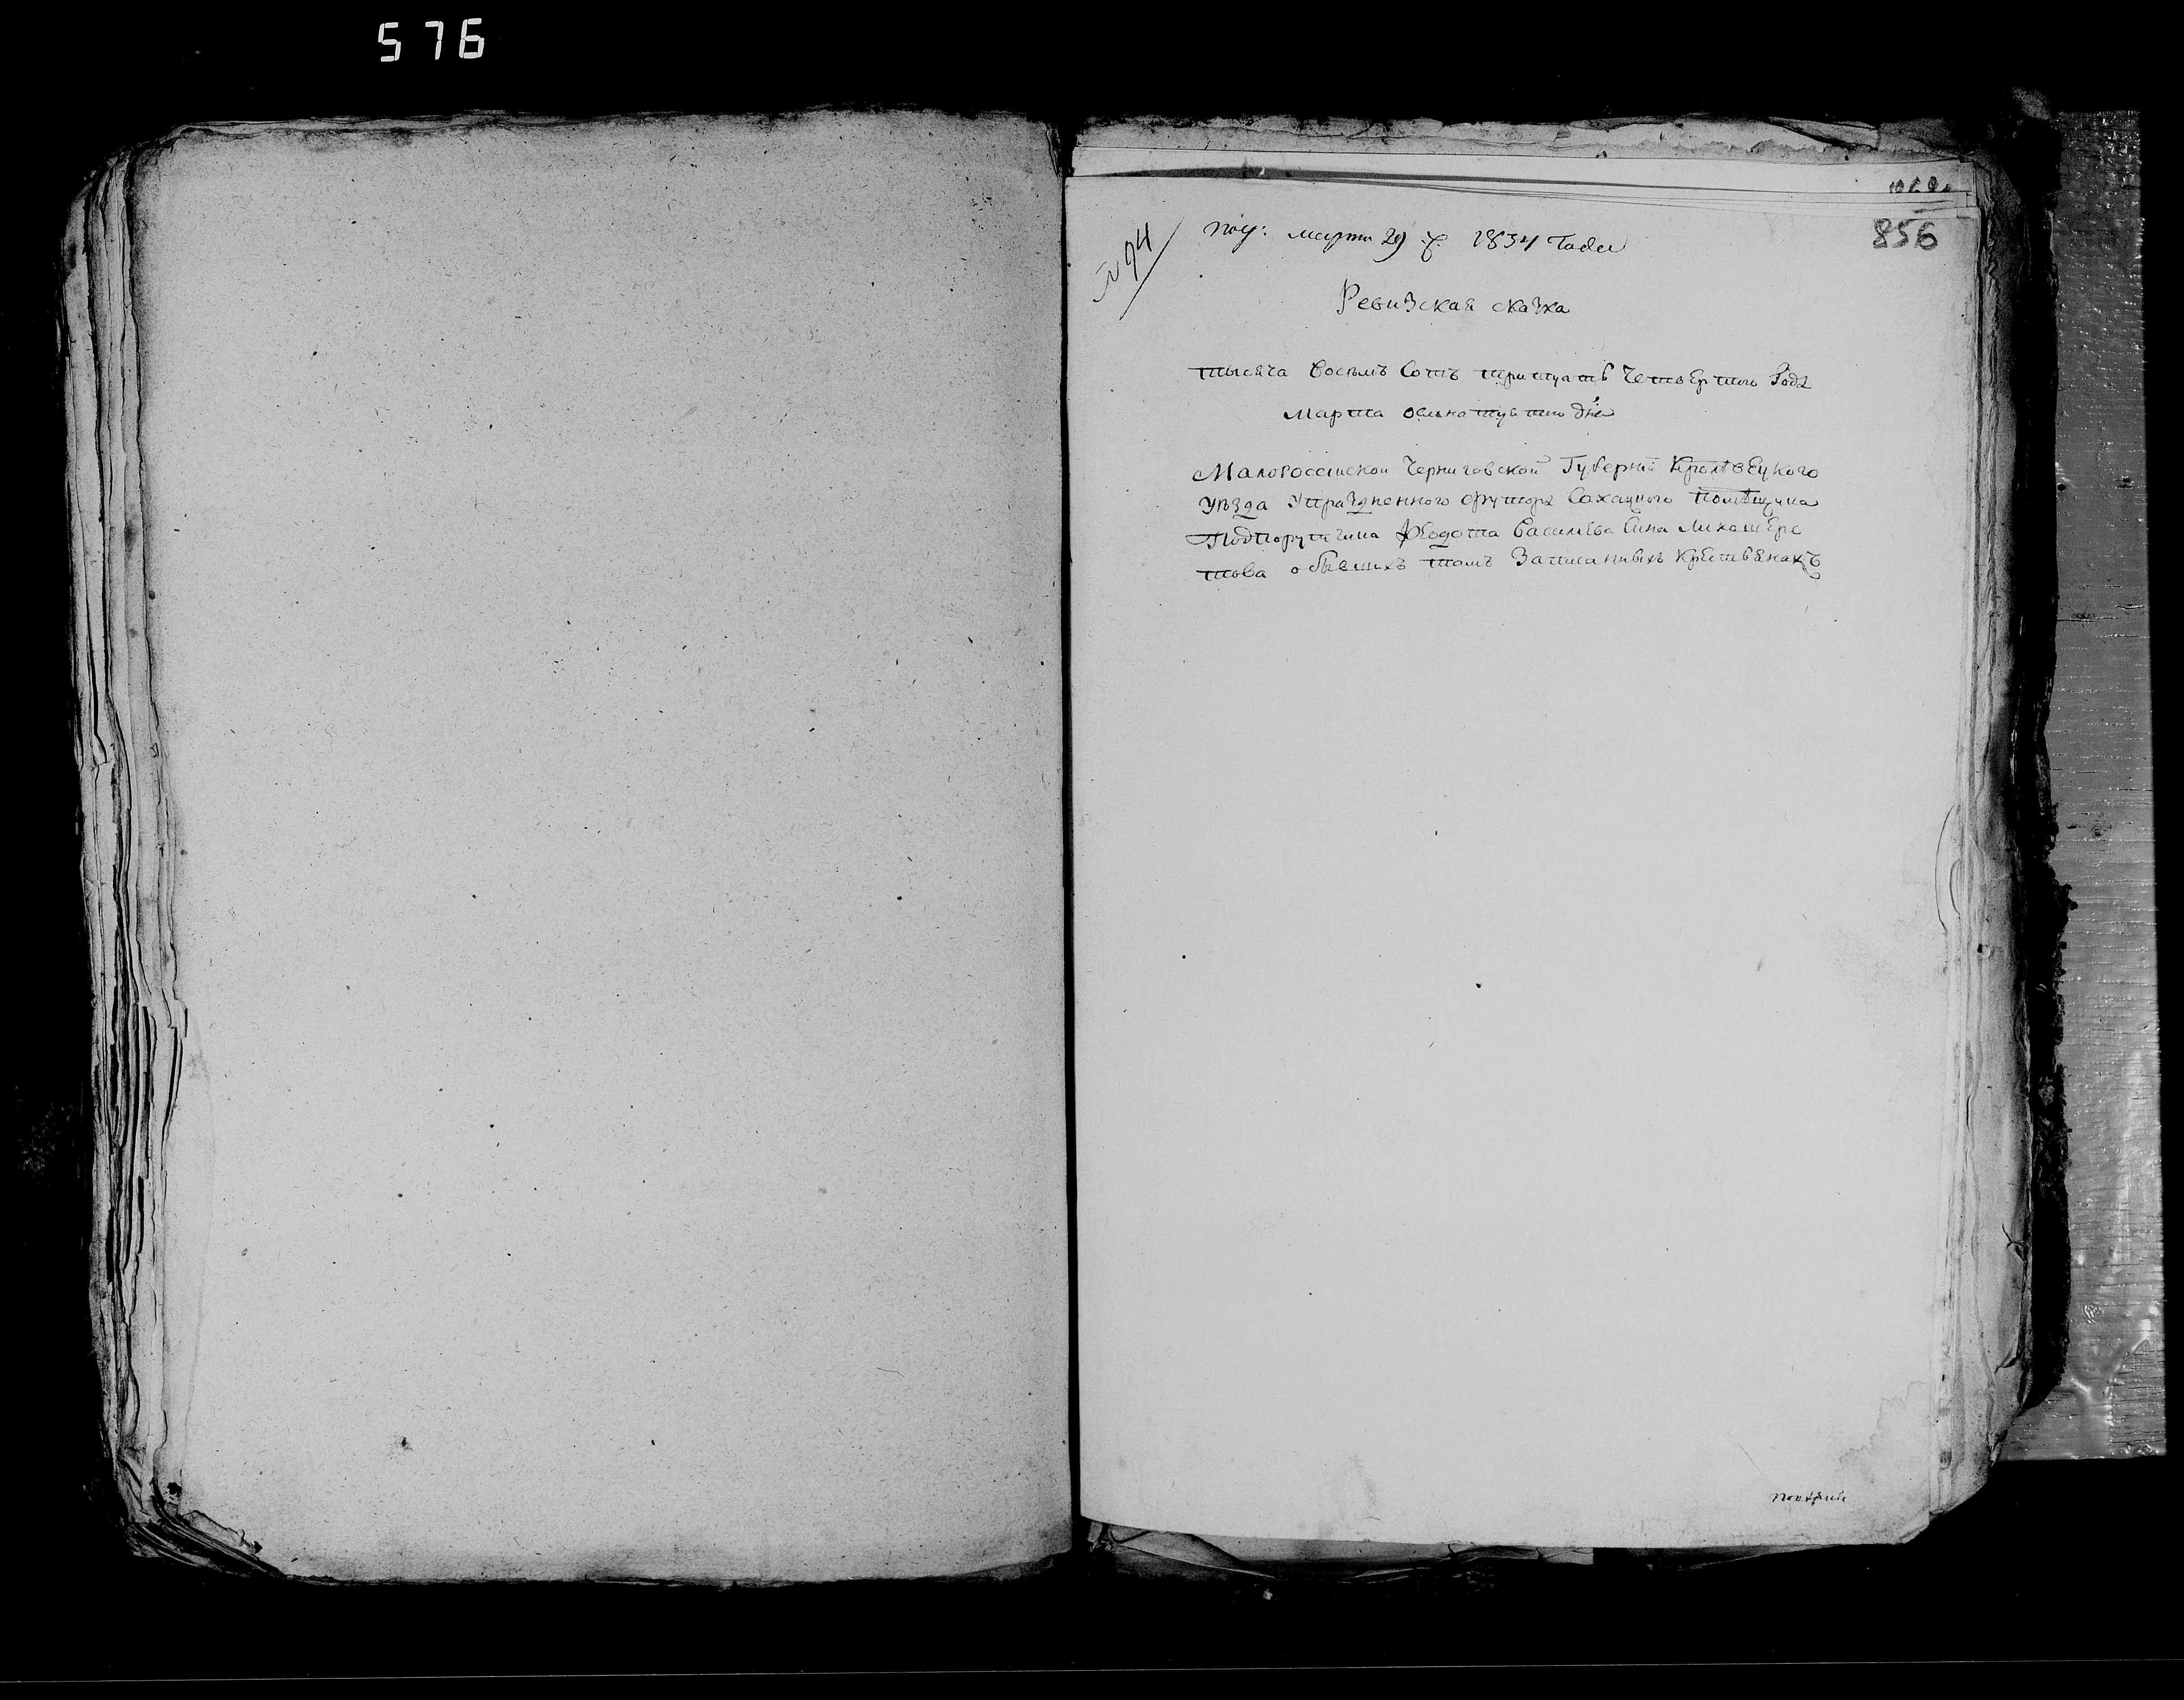 576
856
№ 94
пол: марта 29 д. 1834 Года
Ревизская сказка
тысяча Восемъ Сотъ тритцать Четвертого Года
Марта осьмнатцатого дня
Малоросcийской Черниговской Губернїи Кролѣвецкого
уѣзда Упраздненного хутора Сохацкого помѣщика
Подпорутчика Феодота Васильева Сина
това о бывшихъ тамъ Записанныхъ Крестьянахъ